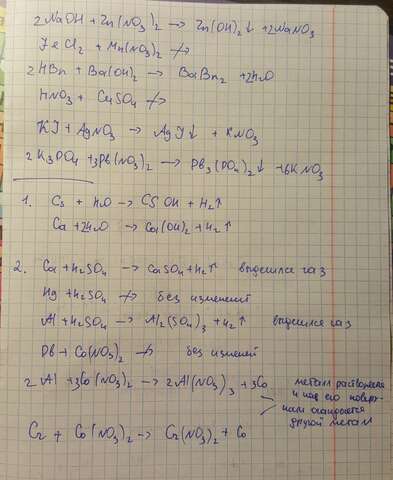 2NaOH + Zn(NO₃)₂ → Zn(OH)₂↓ + 2NaNO₃
FeCl₂ + Mn(NO₃)₂ ↛
2HBr + Ba(OH)₂ → BaBr₂ + 2H₂O
HNO₃ + CuSO₄ ↛
KI + AgNO₃ → AgI↓ + KNO₃
2K₃PO₄ + 3Pb(NO₃)₂ → Pb₃(PO₄)₂↓ + 6KNO₃
1. Cs + H₂O → CsOH + H₂↑
Ca + 2H₂O → Ca(OH)₂ + H₂↑
2. Ca + H₂SO₄ → CaSO₄ + H₂↑ выделился газ
Hg + H₂SO₄ ↛ без изменений
Al + H₂SO₄ → Al₂(SO₄)₃ + H₂↑ выделился газ
Pb + Co(NO₃)₂ ↛ без изменений
2Al + 3Co(NO₃)₂ → 2Al(NO₃)₃ + 3Co
металл растворяется
и на его поверх-
ности
другой металл
Cr + Co(NO₃)₂ → Cr(NO₃)₂ + Co